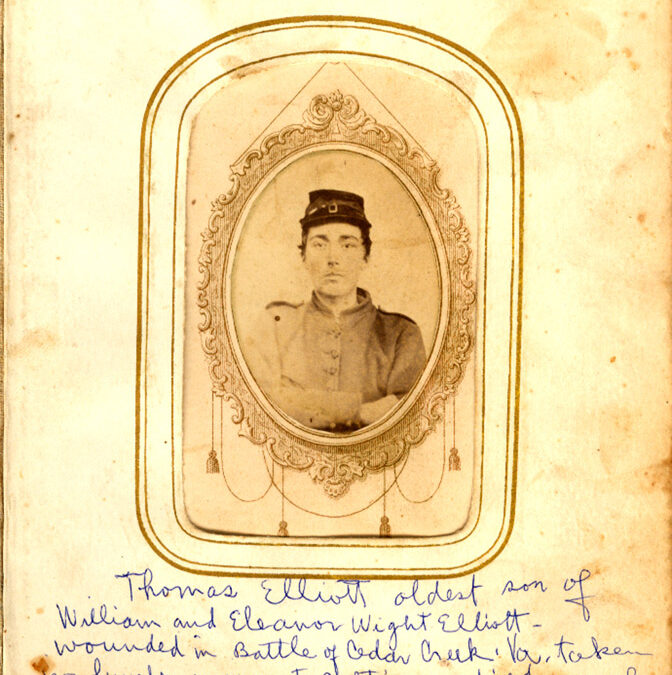 Thomas Elliott oldest son of
William and Eleanor Wight Elliott -
wounded in Battle of Cedar Creek, Va, taken